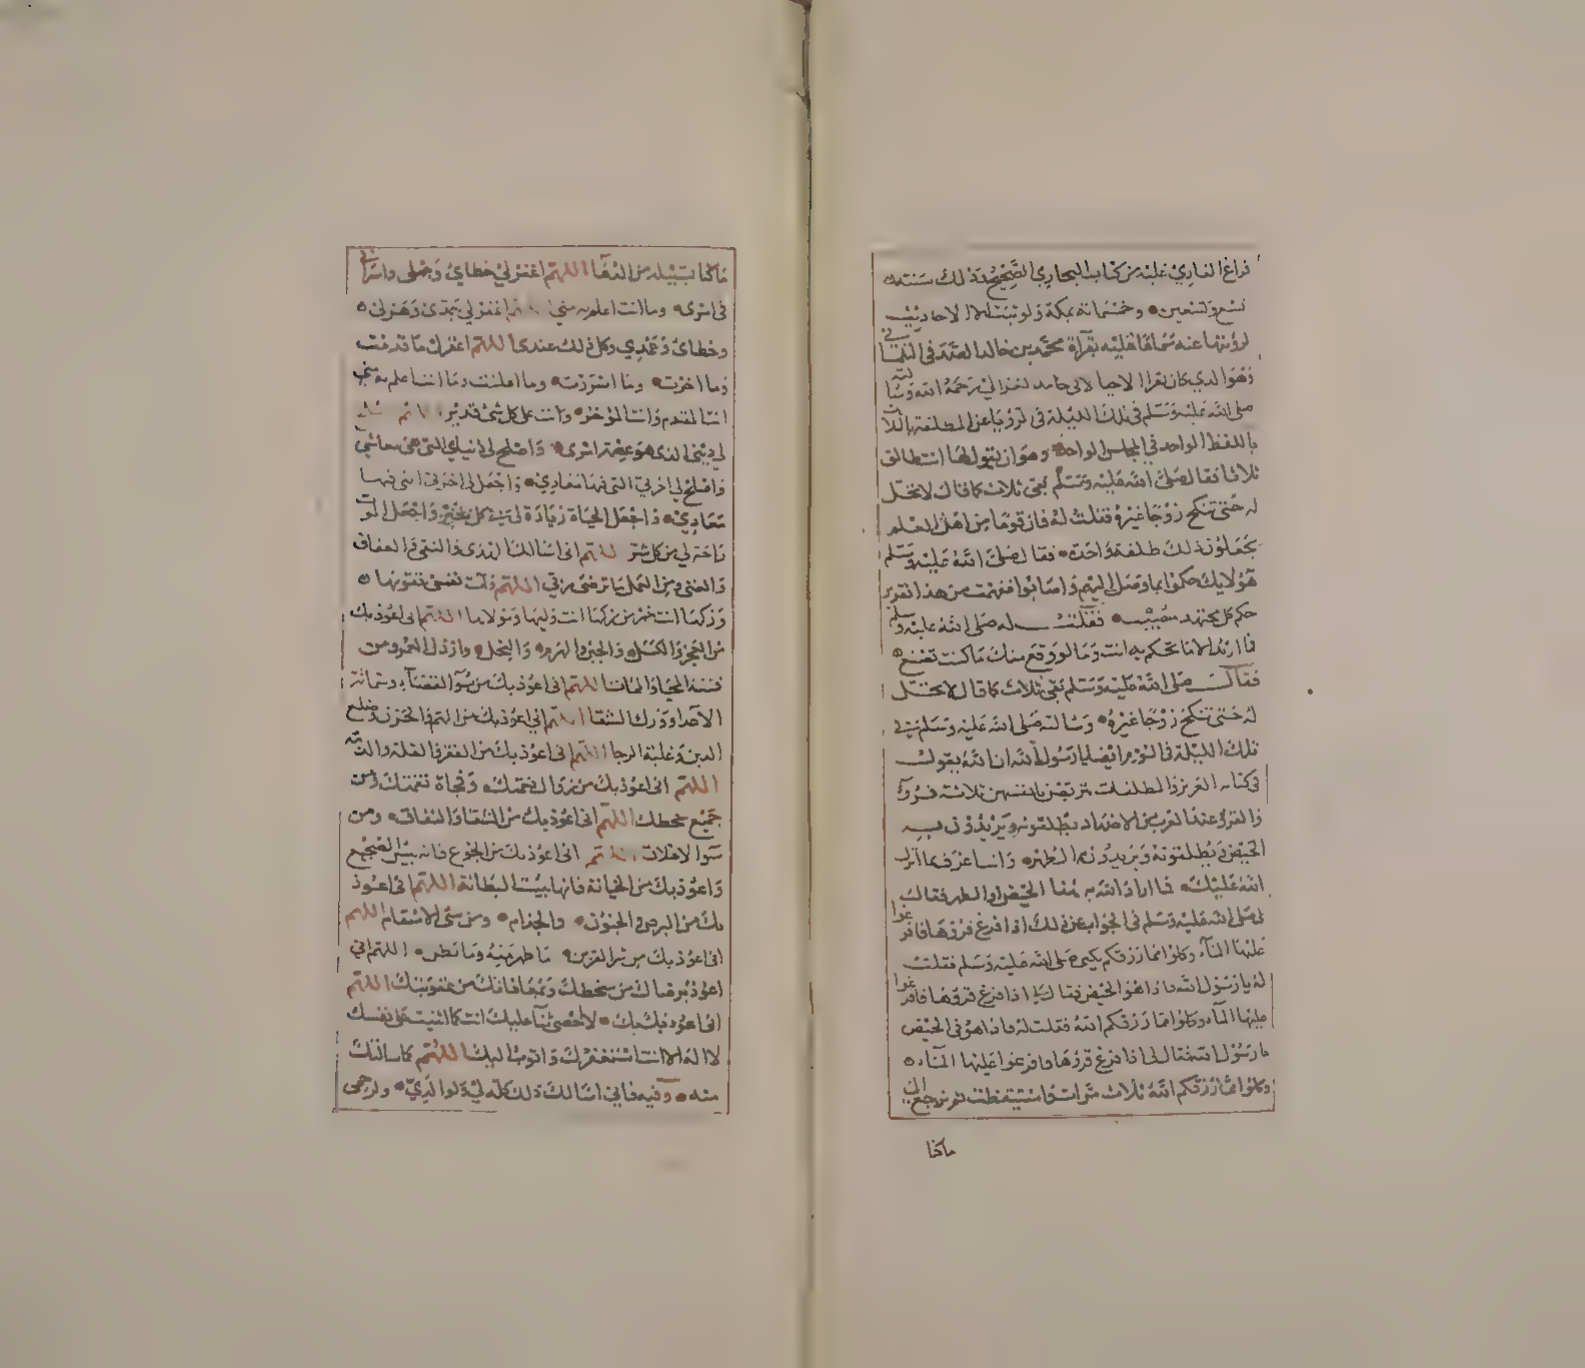 فراغ القاري عليه من كتاب البخاري الصحيح وذلك سنة
تسع وتسعين وخمسمائة بمكة الاحاديث
لرؤيتها عنه محمد بن خالد الصدفي
وهو الذي كان يقرأ الاحيا لابي حامد الغزالي رحمه الله
صلى الله عليه وسلم في تلك الليلة في لرؤيا عن المطلقة بالثلاث
بلفظ الواحد في المجلس الواحد وهو ان يقول لها انت طالق
ثلاثا فقال صلى الله عليه وسلم هي ثلاث كما قال لا تحل
له حتى تنكح زوجا غيره فقلت له فان قوما من اهل العلم
يجعلون ذلك طلقة واحدة فقال صلى الله عليه وسلم
هؤلايك حكموا بما وصل اليهم واصابوا ففهمت من هذا تقرير
حكم كل مجتهد مصيب فقلت له صلى الله عليه وسلم
فما اريد الا ما تحكم به انت وما لو وقع منك ما كنت تصنع
فقال صلى الله عليه وسلم هي ثلاث كما قال لا تحل
له حتى تنكح زوجا غيره وسالته صلى الله عليه وسلم في
تلك الليلة في النوم ايضا يا رسول الله ان الله يقول
في كتابه العزيز والمطلقات يتربصن بانفسهن ثلاثة قروء
والقرؤ عند العرب من الاضداد يطلقونه ويريدون به
الحيض ويطلقونه ويريدون به الطهر وانت اعرف بما انزل
الله عليك فما اراد الله به هنا الحيض او الطهر فقال
لي صلى الله عليه وسلم في الجواب عن ذلك اذا فرغ قرؤها فافرغوا
عليها الماء وكلوا مما رزقكم صلى الله عليه وسلم فقلت
له يا رسول الله فاذا هو الحيض فقال لي اذا فرغ قرؤها فافرغوا
عليها الماء وكلوا مما رزقكم الله فقلت له فاذا هو في الحيض
يا رسول الله فقال لي اذا فرغ قرؤها فافرغوا عليها الماء
وكلوا مما رزقكم الله ثلاث مرات واستيقظت ثم نرجع الى
ماكنا
ماكنا بسبيله من الدعاء اللهم اغفر لي خطاي وجهلي واسرافي
في امري وما انت اعلم به مني اللهم اغفر لي جدي وهزلي
وخطاي وعمدي وكل ذلك عندي اللهم اغفر لي ما قدمت
وما اخرت وما اسررت وما اعلنت وما انت اعلم به مني
انت المقدم وانت المؤخر وانت على كل شئ قدير اللهم اصلح
لي ديني الذي هو عصمة امري واصلح لي دنياي التي هي معاشي
واصلح لي اخرتي التي فيها معادي واجعل لي اخرتي التي فيها
معادي واجعل الحياة زيادة لي في كل خير واجعل الموت
راحة لي من كل شر اللهم اني اسالك الهدى والتقى والعفاف
والغنى ومن العمل ما ترضى ربي اللهم وآت نفسي تقويها
وزكها انت خير من زكاها انت وليها ومولاها اللهم اني اعوذ بك
من العجز والكسل والجبن والهرم والبخل وارذل العمر ومن
فتنة المحيا والممات اللهم اني اعوذ بك من سوء القضاء وشماتة
الاعداء ودرك الشقا اللهم اني اعوذ بك من الهم والحزن وضلع
الدين وغلبة الرجال اللهم اني اعوذ بك من الفقر والقلة والذلة
اللهم اني اعوذ بك من زوال نعمتك وفجاة نقمتك ومن
جميع سخطك اللهم اني اعوذ بك من الشقاق والنفاق ومن
سوء الاخلاق اللهم اني اعوذ بك من الجوع فانه بيس الضجيع
واعوذ بك من الخيانة فانها بيست البطانة اللهم اني اعوذ
بك من البرص والجنون والجذام ومن سئ الاسقام اللهم
اني اعوذ بك من شر الفتن ما ظهر منها وما بطن اللهم اني
اعوذ برضاك من سخطك وبمعافاتك من عقوبتك اللهم
اني اعوذ بك منك لا احصي ثناء عليك انت كما اثنيت على نفسك
لا اله الا انت استغفرك واتوب اليك اللهم كما سالتك
منه وفيه فاني اسالك ذلك كله لي ولوالدي ولرحمي